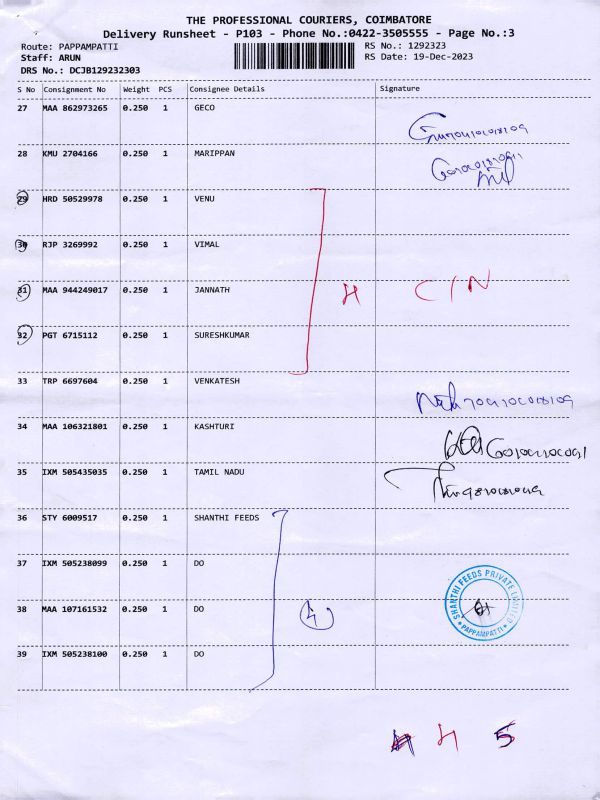 THE PROFESSIONAL COURIERS, COIMBATORE
Delivery Runsheet - P103 - Phone No.:0422-3505555 - Page No.:3
Route: PAPPAMPATTI
RS No.: 1292323
Staff: ARUN
RS Date: 19-Dec-2023
DRS No.: DCJB129232303
S No Consignment No Weight PCS Consignee Details Signature
27 MAA 862973265 0.250 1 GECO
28 KMU 2704166 0.250 1 MARIPPAN
29 HRD 50529978 0.250 1 VENU
30 RJP 3269992 0.250 1 VIMAL
31 MAA 944249017 0.250 1 JANNATH
4 C/N
32 PGT 6715112 0.250 1 SURESHKUMAR
33 TRP 6697604 0.250 1 VENKATESH
34 MAA 106321801 0.250 1 KASHTURI
35 IXM 505435035 0.250 1 TAMIL NADU
36 STY 6009517 0.250 1 SHANTHI FEEDS
37 IXM 505238099 0.250 1 DO
38 MAA 107161532 0.250 1 DO
4
SHANTHI FEEDS PRIVATE LIMITED
* PAPPAMPATTI *
39 IXM 505238100 0.250 1 DO
4 5